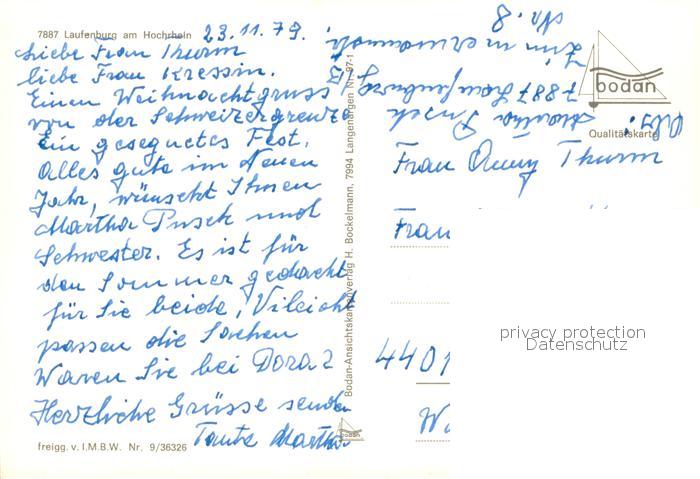 7887 Laufenburg am Hochrhein
23.11.79.
Liebe Frau Thurm
liebe Frau Kressin.
Einen Weihnachtgruss
von der Schweizergrenze
Ein gesegnetes Fest,
alles gute im Neuen
Jahr, wünscht Ihnen
Martha Pusch und
Schwester. Es ist für
den Sommer gedacht
für Sie beide, Vileicht
passen die Sachen
Waren Sie bei Dora?
Herzliche Grüsse senden
Tante Martha
freigg. v. I.M.B.W. Nr. 9/36326
Bodan-Ansichtskartenverlag H. Bockelmann, 7994 Langenargen
bodan
bodan
Qualitätskarte
Abs:
Martha Pusch
7887 Laufenburg
Nr. 8
Frau Anny Thurm
Frau
4401
privacy protection
Datenschutz